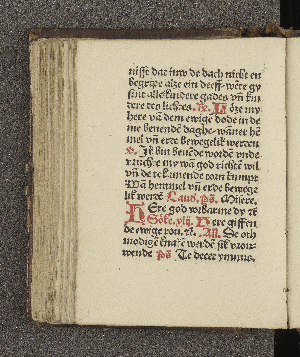 nisse dat iuw de dach nicht en
begrype alze ein deeff. wēte gy
sint alle kindere gades vn̄ kin
dere des lichtes. Rx. Löze my
here vā dem ewige dode in de
me beuende daghe. wāner hē
mel vn̄ erde bewegelik werten
V. Ik bin beuēde wordē vnde
vruchte my wā god richtē wil
vn̄ de tokamende torn kumpt
Wā hemmel vn̄ erde bewege
lik werdē Laud. ps. Misere.
Here god vorbarme dy ꝛc
Here giffen
de ewige rou. ꝛc. De oth
modigē knakē werdē sik vrou-
wende ps Te decet ymnus.